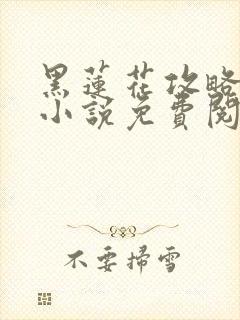 黑蓮花攻略
小說免費閱
不要掃雪